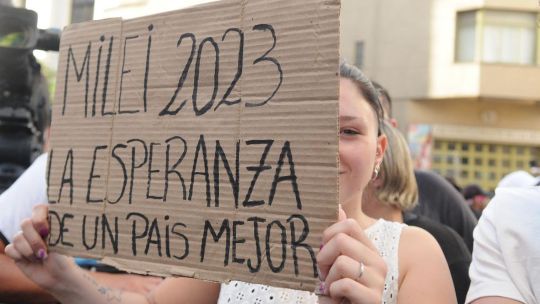 MILEI 2023
LA ESPERANZA
DE UN PAIS MEJOR